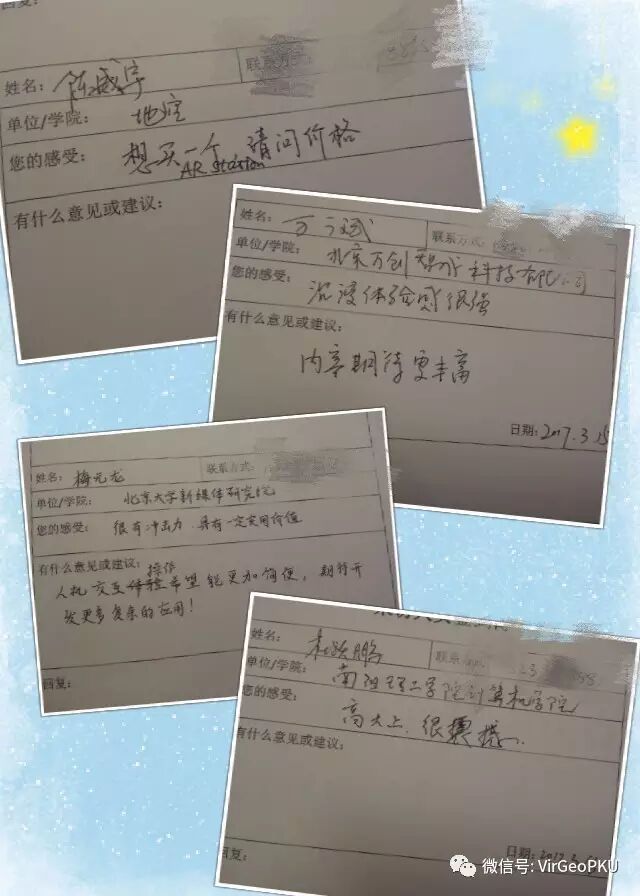 回复:
姓名:
联系方式:
单位/学院: 地空
您的感受: 想买一个 请问价格
AR Station
有什么意见或建议:
姓名: 万
联系方式:
单位/学院: 北京万创 科技有限公司
您的感受: 沉浸体验感很强
有什么意见或建议:
内容期待更丰富
日期: 2017.3.15
姓名: 梅元龙
联系方式:
单位/学院: 北京大学新媒体研究院
您的感受: 很有冲击力,具有一定实用价值
有什么意见或建议: 操作
人机交互 希望能更加简便,期待开
发更多复杂的应用!
回复:
姓名: 鹏
联系
单位/学院: 南阳理工学院计算机学院
您的感受: 高大上、很
有什么意见或建议:
日期: 2017.3
回复:
微信号: VirGeoPKU